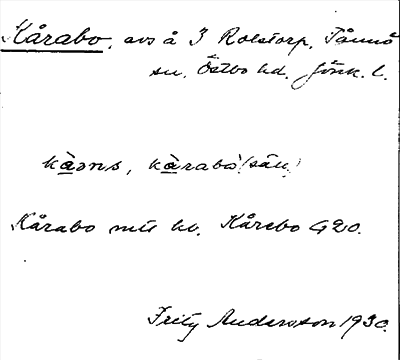 Kårabo, avs å 3 Rolstorp, Tånnö
sn, Östbo hd. Jönk. l.
kàəns, kàrabo (sän.)
Kårabo mtl kv. Kårebo G20.
Fritz Andersson 1930.